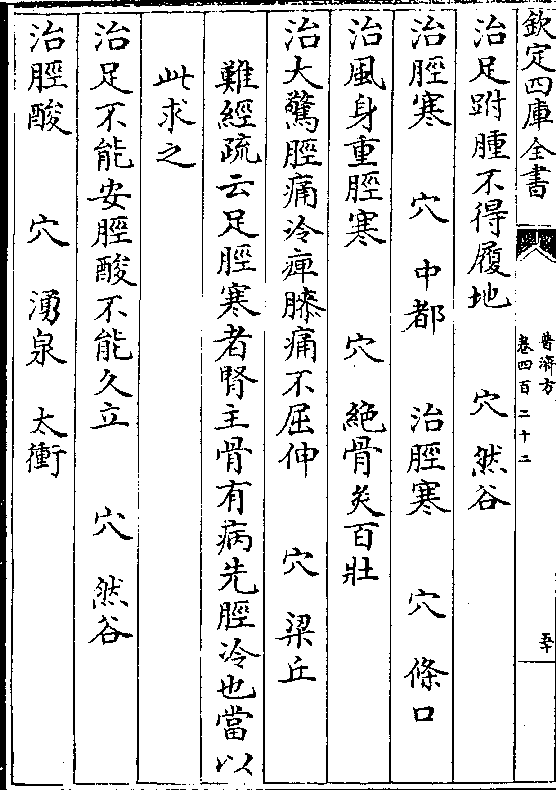 欽定四庫全書
普濟方
卷四百二十二
治足跗腫不得履地　穴　然谷
治脛寒　穴　中都　治脛寒　穴　條口
治風身重脛寒　穴　絶骨灸百壯
治大驚脛痛冷痺膝痛不屈伸　穴　梁丘
難經疏云足脛寒者腎主骨有病先脛冷也當以
此求之
治足不能安脛酸不能久立　穴　然谷
治脛酸　穴　湧泉　太衝